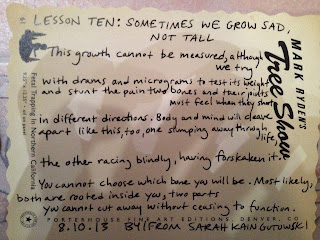 LESSON TEN: SOMETIMES WE GROW SAD,
NOT TALL
This growth cannot be measured, although
we try!
with drams and micrograms to test its weight
and stunt the pain two bones and their joints
must feel when they shoot
In different directions. Body and mind will cleave
apart like this, too, one slumping away through
life,
the other racing blindly, having forsaken it.
You cannot choose which bone you will be. Most likely,
both are rooted inside you, two parts
you cannot cut away without ceasing to function.
8.10.13 BY/FROM SARAH KAIN GUTOWSKI
MARK RYDEN'S
Tree Show
Fetal Trapping in Northern California
PORTERHOUSE FINE ART EDITIONS, DENVER, CO